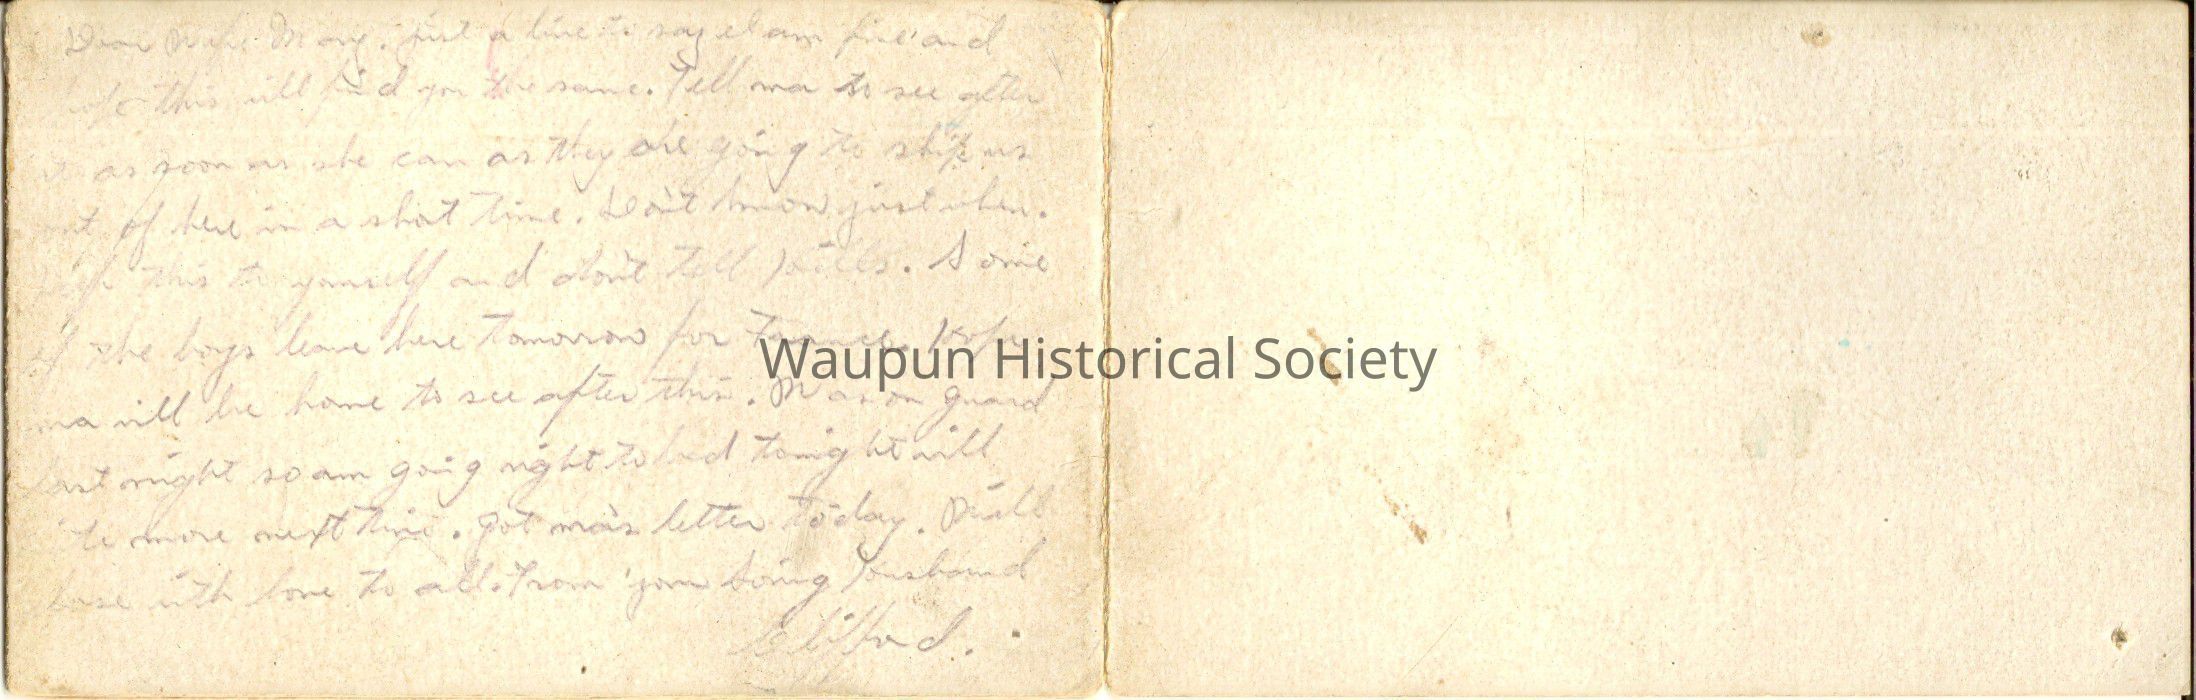 Dear Wife Mary. just a line to say I am fine and
hope this will find you the same. Tell ma to see after
it as soon as she can as they are going to ship us
out of here in a short time. Don't know just when.
keep this to yourself and don't tell Mills. Some
of the boys leave here tomorrow for France. Hope
ma will be home to see after this. Was on guard
last night so am going right to bed tonight will
ite more next time. got ma's letter today. Will
close with love to all. From your loving Husband
Clifford.
Waupun Historical Society